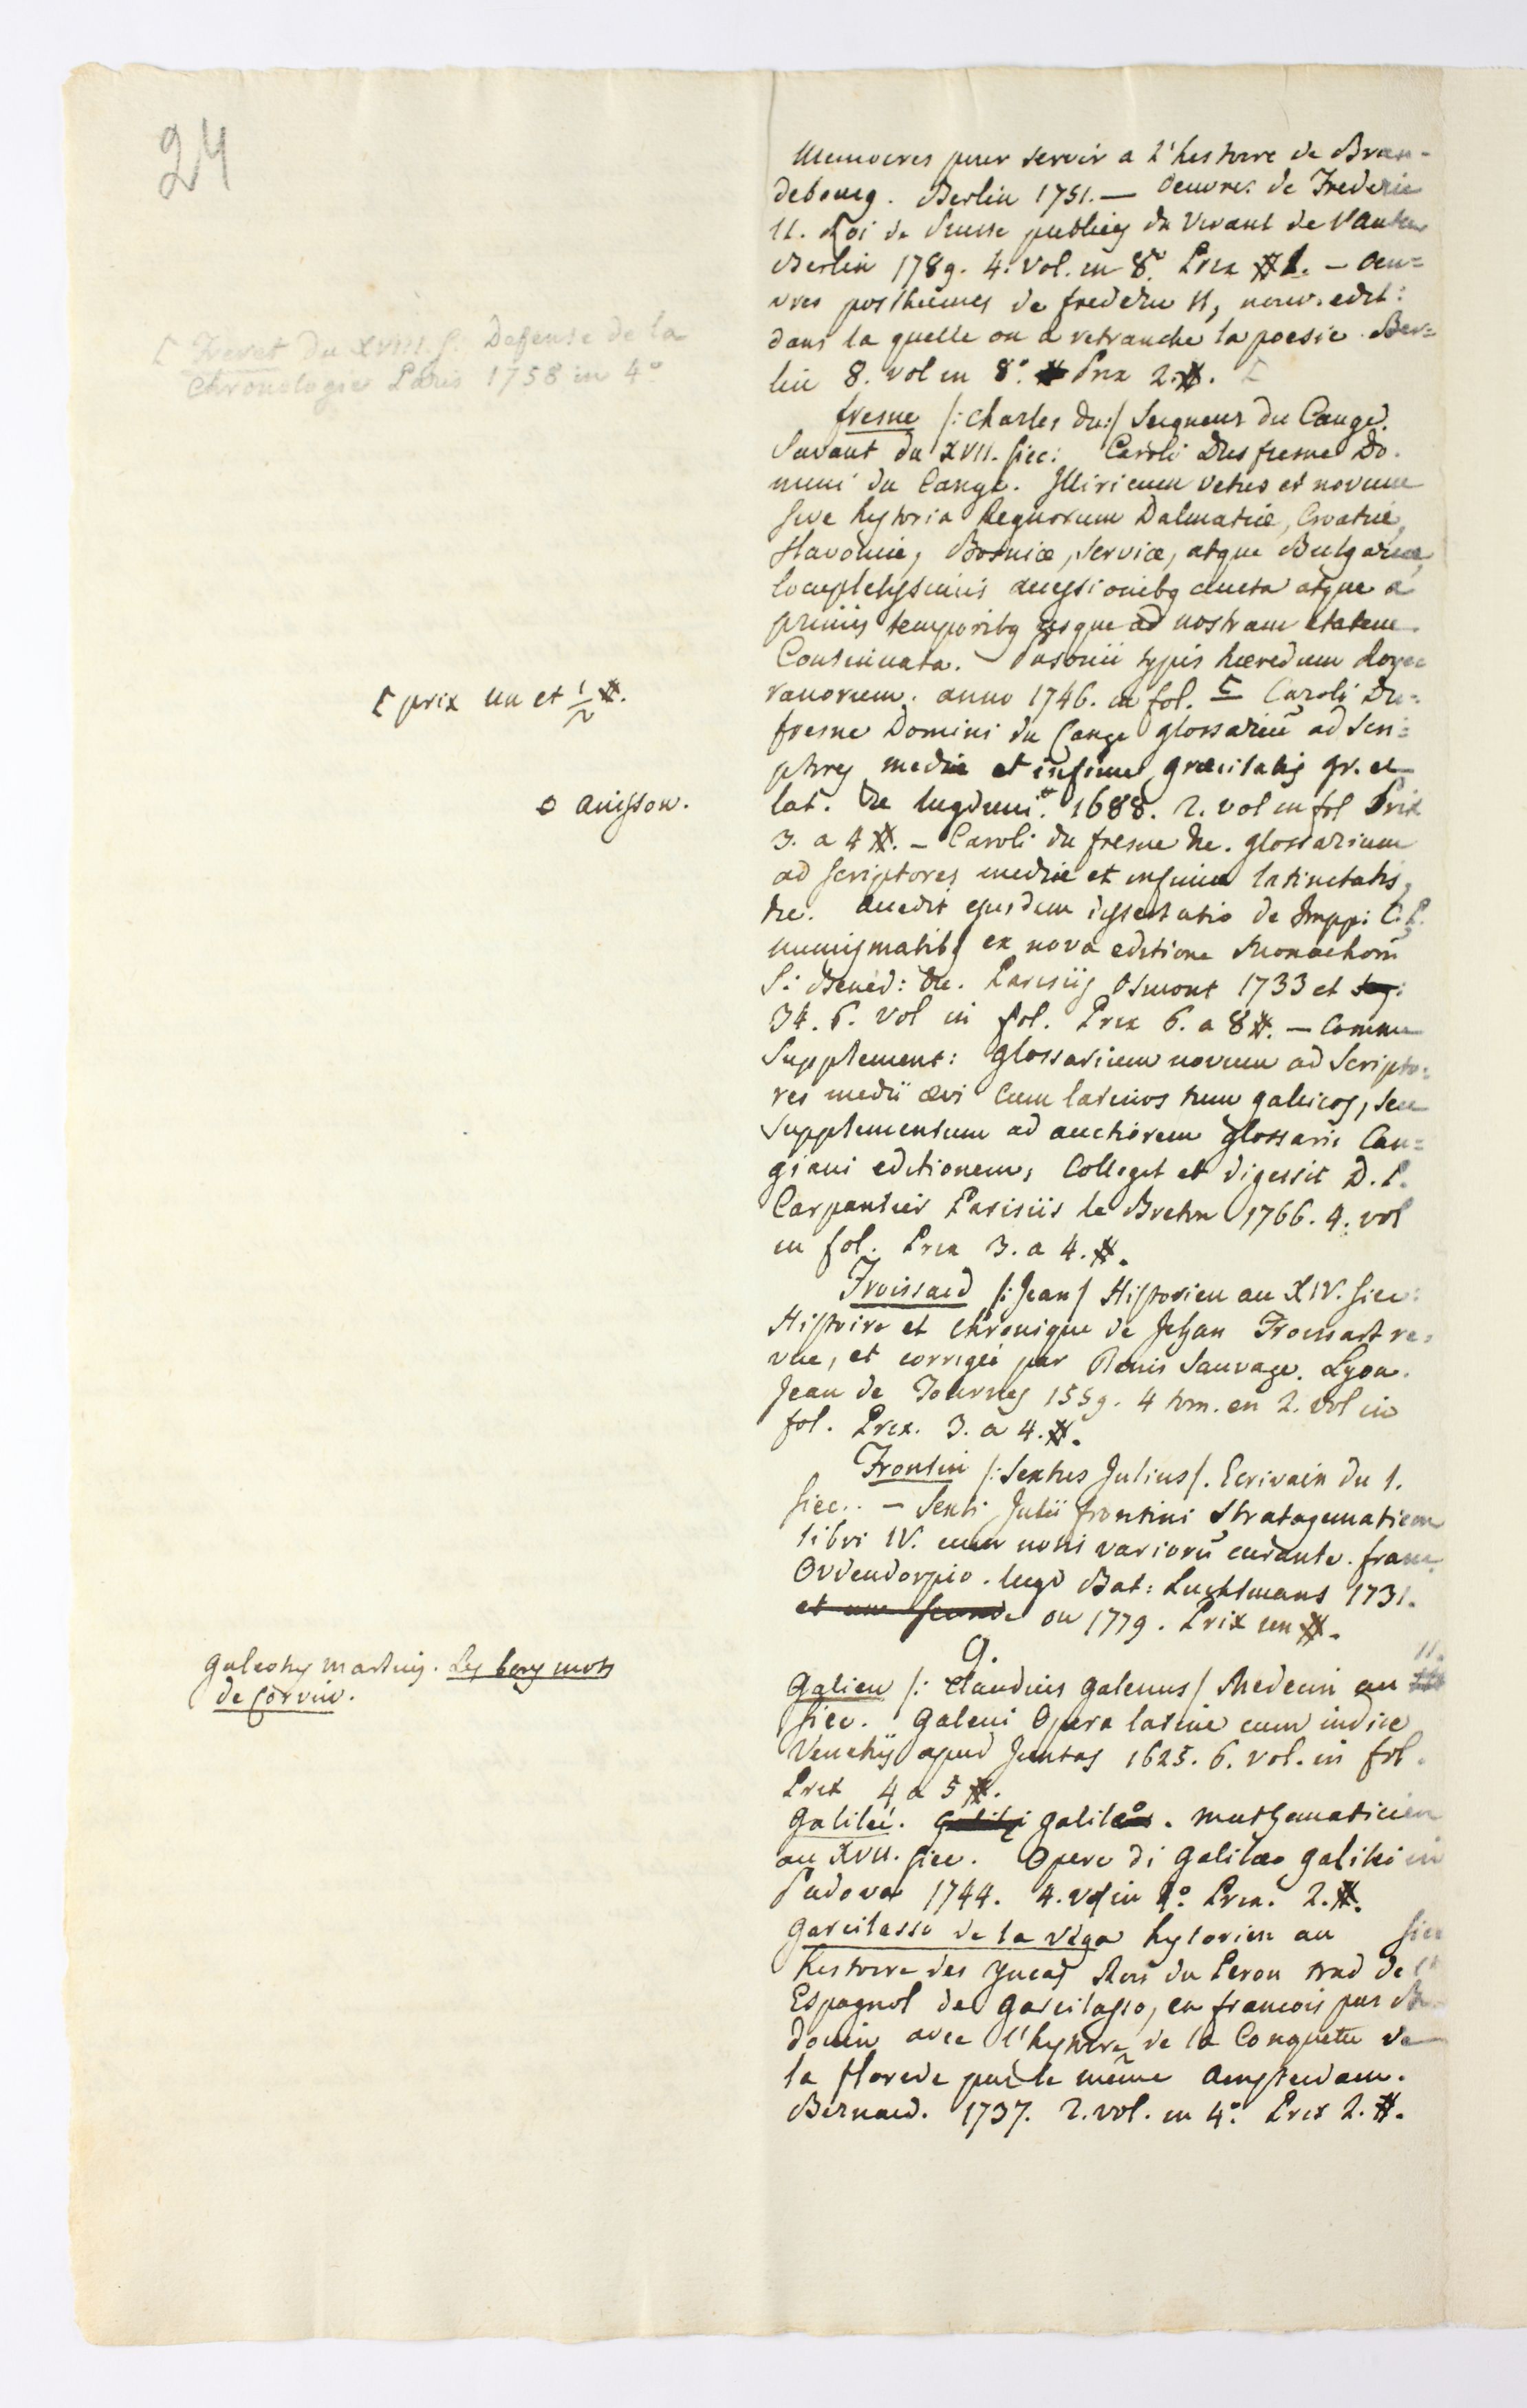 24
Memoires pour servir a l'histoire de Bran-
debourg. Berlin 1751. — Oeuvres de Frederic
II. Roi de Prusse publiés du vivant de l'auteur
Berlin 1789. 4. vol. in 8.º Prix #1. — Oeu=
vres posthumes de frederic II, nouv. edit:
dans la quelle on a retranche la poesie. Ber=
lin 8. vol in 8.º Prix 2. #. [
[ Freret du XVIII. S. Defense de la
Chronologie Paris 1758 in 4.º
fresne /: Charles du :/ Seigneur du Cange.
Savant du XVII. siec: Caroli Du fresne Do-
mini du Cange. Illiricum vetus et novum
sive hystoria Regnorum Dalmatiæ, Croatiæ,
Slavoniæ, Bosniæ, Serviæ, atque Bulgariæ,
locupletissimis accessionibq aucta atque a
primis temporibq usque ad nostram etatem
Continuata. Posonii typis hæredum Roye
ranorum. anno 1746. in fol. [ Caroli Du=
[ prix un et 1/2 #.
fresne Domini du Cange glossariū ad scri=
ptores mediæ et infimæ græcitatis gr. et
lat. &c lugduni.º 1688. 2. vol in fol Prix
o anisson.
3. a 4 #. — Caroli du fresne &c. glossarium
ad scriptores mediæ et infimæ latinitatis,
&c. accedit ejusdem dissertatio de Impp: C. P.
numismatibq ex nova editione Monachorū
S: Bened: &c. Parisiis Osmont 1733 et seq:
34. 6. vol in fol. Prix 6. a 8 #. — Comme
Supplement: Glossarium novum ad Scripto=
res medii ævi cum latinos tum gallicos, seu
Supplementum ad auctiorem Glossarii Can=
giani editionem, Colleget et digessit D. P.
Carpantier Parisiis le Breton 1766. 4. vol
in fol. Prix 3. a 4. #.
Froissard /: Jean / Historien au XIV. siec:
Histoire et chronique de Jehan Froissart re=
vue, et corrigée par Denis Sauvage. Lyon.
Jean de Tournes 1559. 4 tom. en 2. vol in
fol. Prix. 3. a 4. #.
Frontin /: Sextus Julius /. Ecrivain du 1.
siec.. — Sexti Julii frontini Stratagematicon
libri IV. cum notis variorū curante. franc.
Ovdendorpio. lugd Bat: Luchtmans 1731.
et une seconde ou 1779. Prix un #.
G.
galeoty martius. Les bons mots
de Corvin.
Galien /: Claudius galenus / Medecin au II.
siec. Galeni Opera latine cum indice
Venetijs apud Juntas 1625. 6. vol. in fol.
Prix 4 a 5 #.
Galileí. Galilei galilæo. mathematicien
au XVII. siec. Opere di Galilæo galilei in
Padova 1744. 4. vol in 4.º Prix. 2. #.
Garcilasso de la vega hystorien au siec
histoire des Yncas Rois du Perou trad de l'
Espagnol de Garcilasso, en francois par
douin avec l'hystoire de la Conquete de
la floride par le même Amsterdam.
Bernard. 1737. 2. vol. in 4.º Prix 2. #.